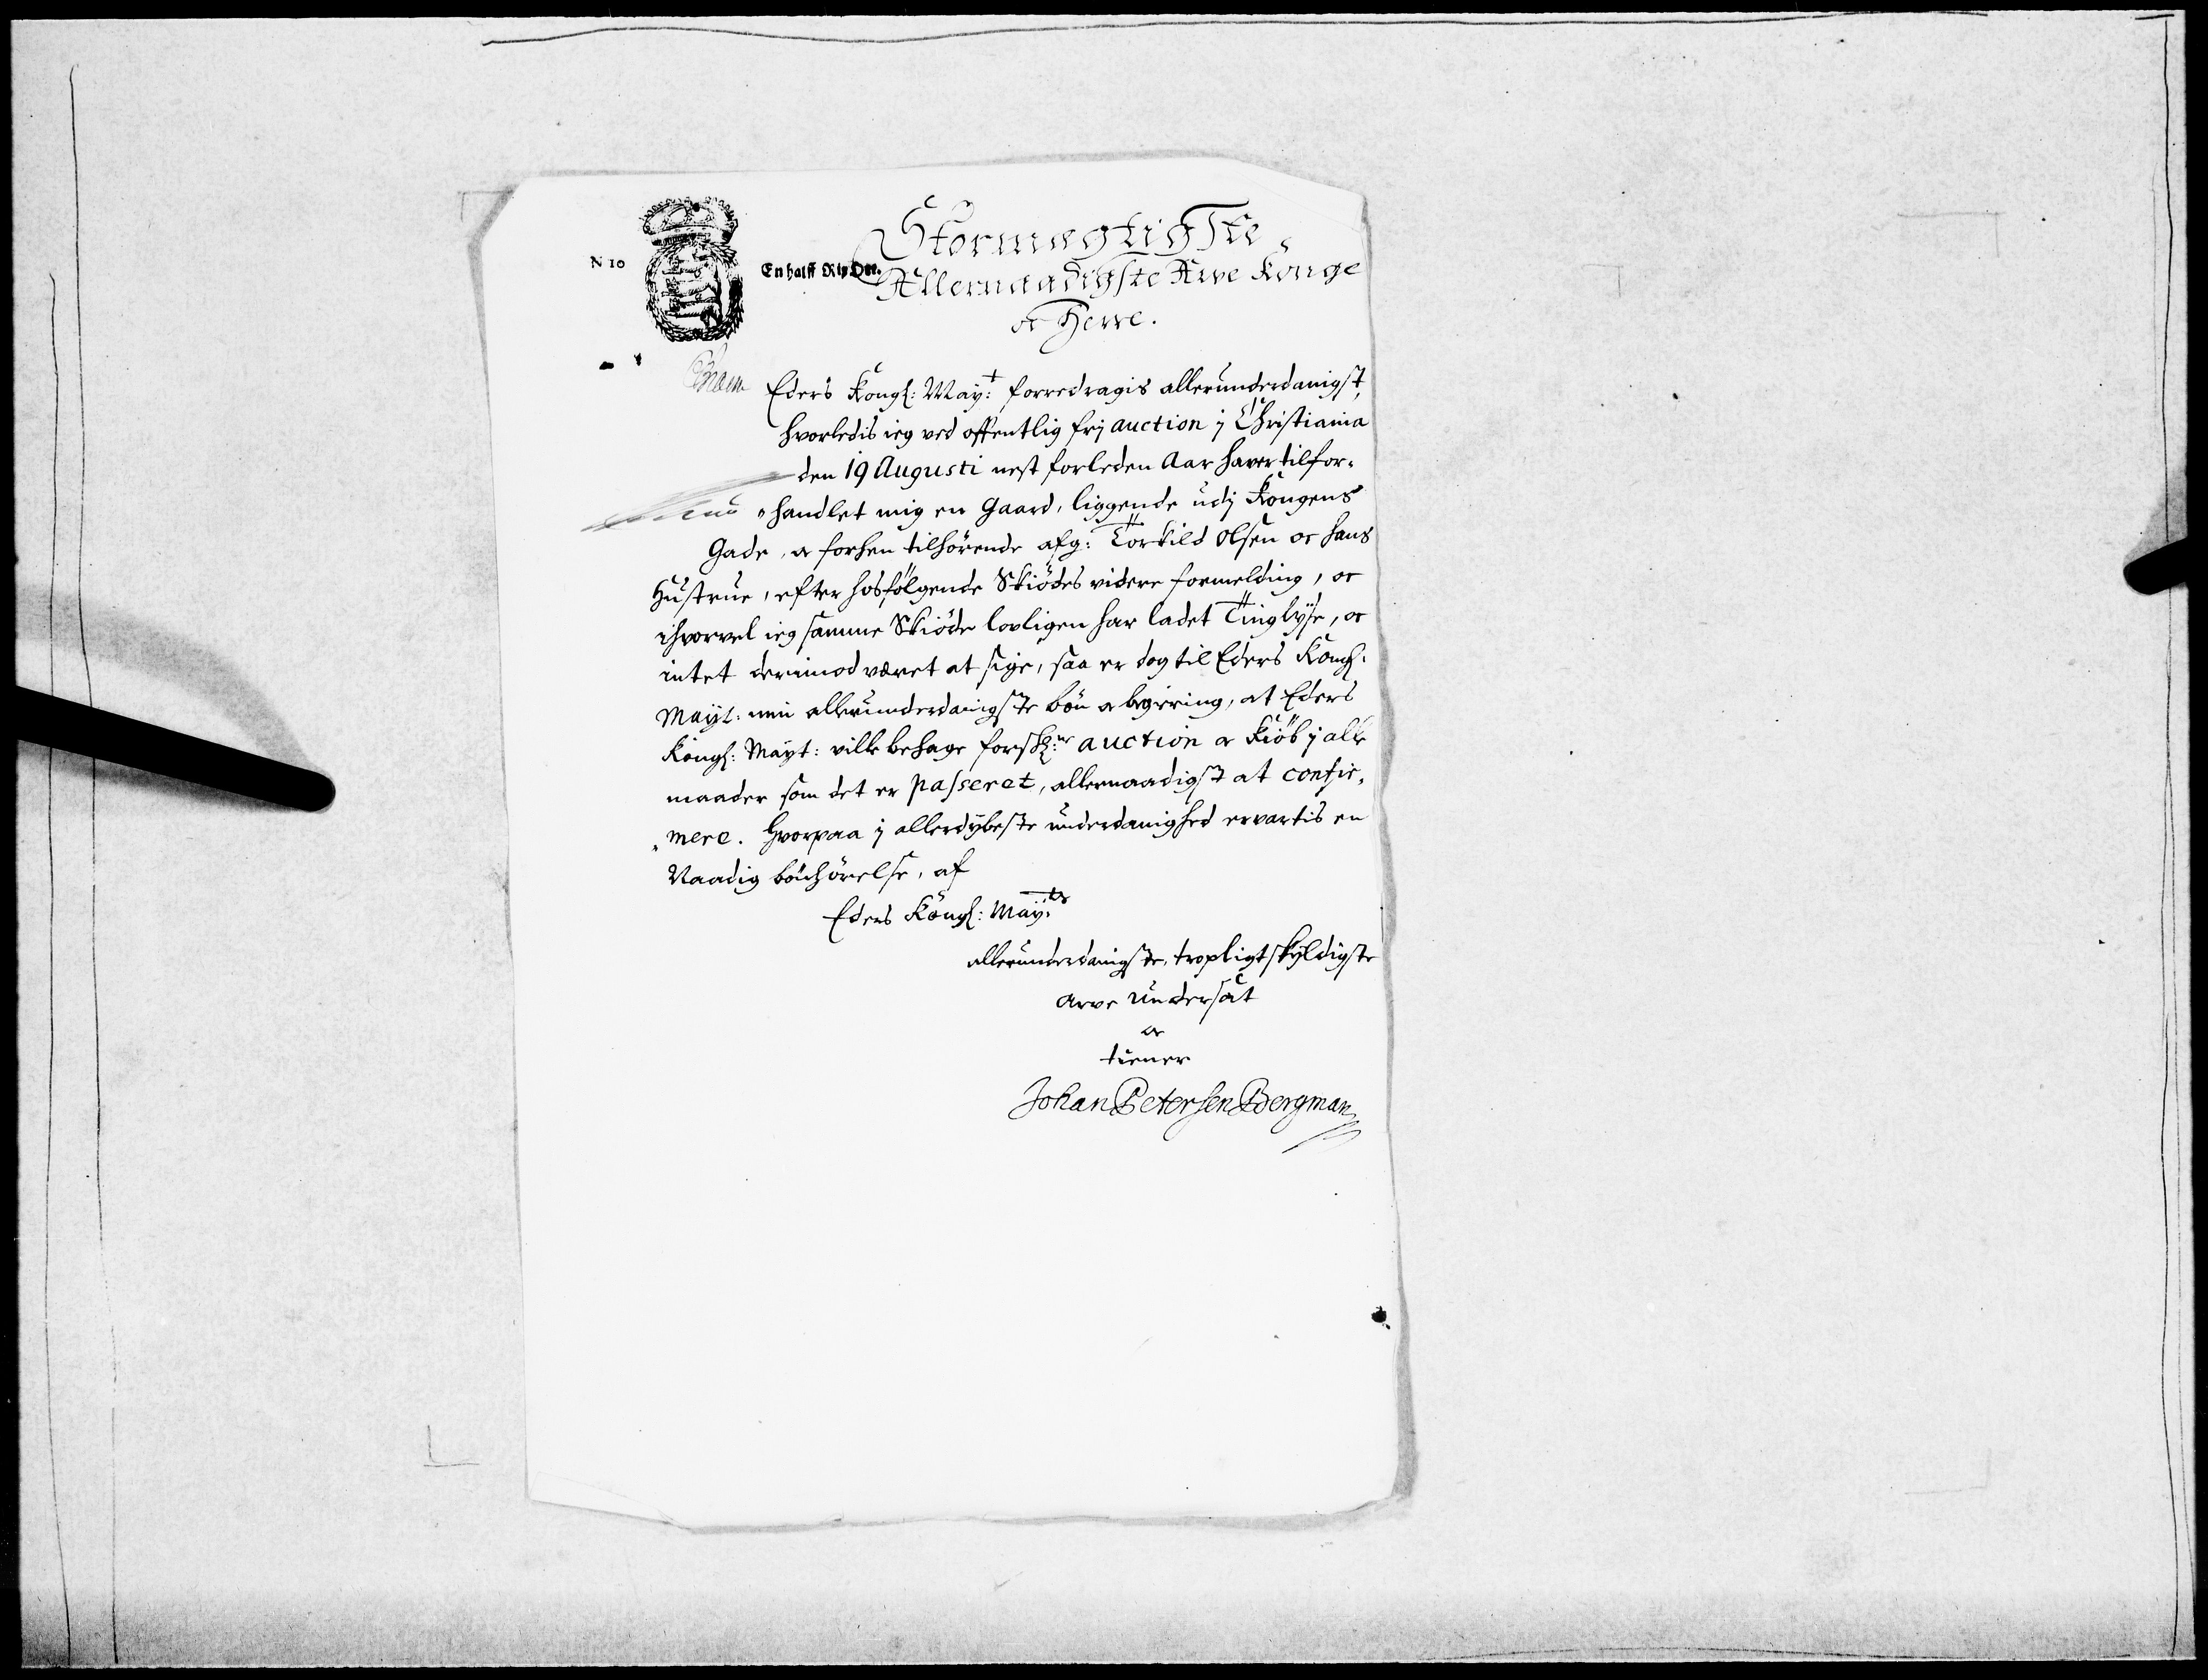 Stormegtigste
N 10
En halff Rix Dlr.
Allernaadigste Arve Konge
oc Herre.
Eders Kongl: May:t forredragis allerunderdanigst,
hvorledis ieg ved offentlig frj auction j Christiania
den 19 Augusti nest forleden Aar haver tilfor-
handlet mig en Gaard, liggende udj Kongens
Gade, oc forhen tilhörende afg: Torkild Olsen oc hans
Hustrue, efter hosfölgende Skiödes videre formelding, oc
ihvorvel ieg samme Skiöde lovligen har ladet Tinglyse, oc
intet derimod været at sige, saa er dog til Eders Kongl:
Mayt: min allerunderdanigste bön oc begiering, at Eders
Kongl: Mayt: ville behage forskl:ne auction oc Kiöb j alle
maader som det er passeret, allernaadigst at confir-
mere. Hvorpaa j allerdybeste underdanighed ervartis en
Naadig bönhörelse, af
Eders Kongl: May:ts
allerunderdanigste, tropligtskyldigste
arve undersaat
oc
tiener
Johan Petersen Bergman